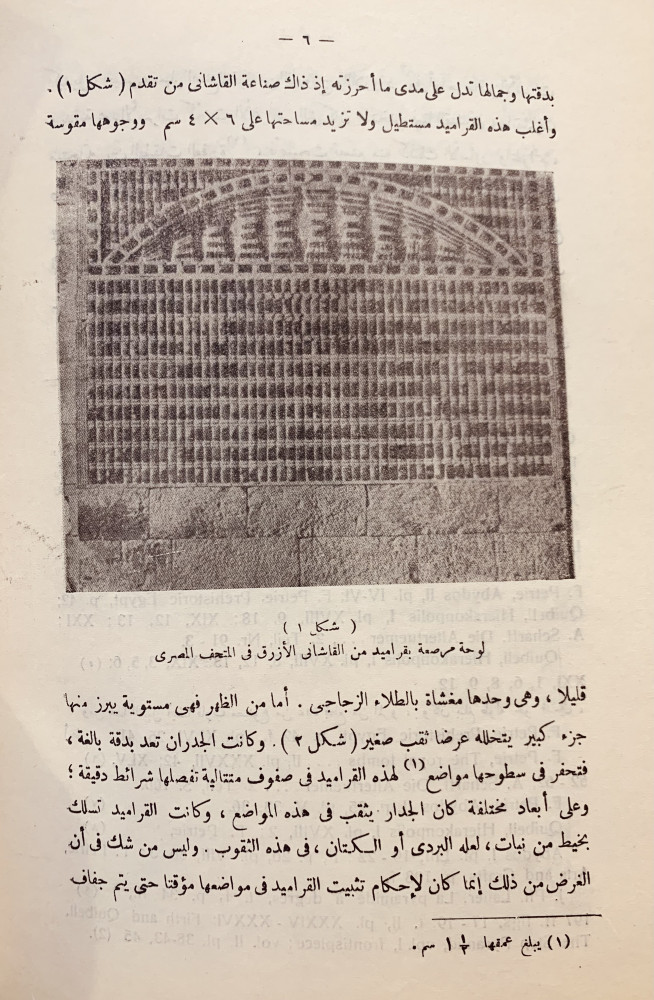 — ٦ —
بدقتها وجمالها تدل على مدى ما أحرزته إذ ذاك صناعة القاشانى من تقدم ( شكل ١ ) .
وأغلب هذه القراميد مستطيل ولا تزيد مساحتها على ٦ × ٤ سم ووجوهها مقوسة
( شكل ١ )
لوحة مرصعة بقراميد من القاشانى الأزرق فى المتحف المصرى
قليلا ، وهى وحدها مغشاة بالطلاء الزجاجى . أما من الظهر فهى مستوية يبرز منها
جزء كبير يتخلله عرضا ثقب صغير ( شكل ٢ ) . وكانت الجدران تعد بدقة بالغة ،
فتحفر فى سطوحها مواضع (١) لهذه القراميد فى صفوف متتالية تفصلها شرائط دقيقة ؛
وعلى أبعاد مختلفة كان الجدار يثقب فى هذه المواضع ، وكانت القراميد تسلك
بخيط من نبات ، لعله البردى أو الكتان ، فى هذه الثقوب . وليس من شك فى أن
الغرض من ذلك إنما كان لإحكام تثبيت القراميد فى مواضعها مؤقتا حتى يتم جفاف
(١) يبلغ عمقها سم .